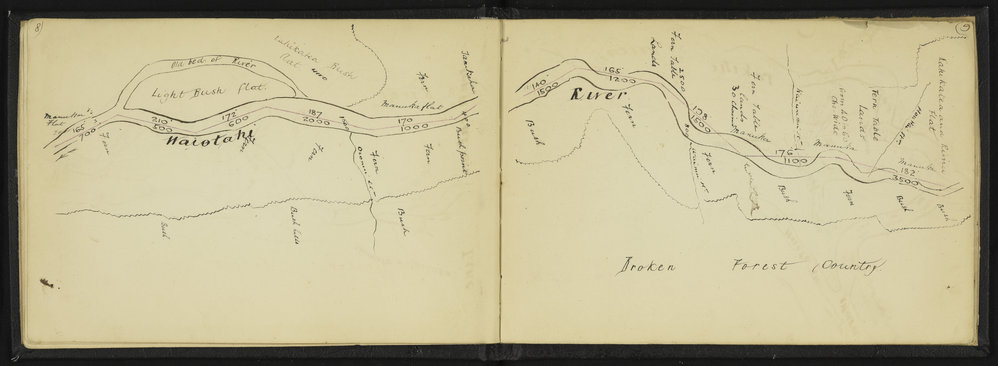 8)
Old bed of River
Light Bush Flat.
Bush
Flat
Manuka
Flat
165
700
210
500
172
600
187
2000
Manuka flat
170
1000
Waiotahi
Fern
Fern
Fern
Fern
Fern
Fern
Bush
Bush hills
Bush
9
140
1500
165
1200
River
Fern Table
Lands
2500
178
1500
Fern Table
Lands
30 chains
Manuka
176
1100
Manuka
Fern Table
Lands
Flat
Manuka
182
3500
Bush
Fern
Fern
Bush
Fern
Bush
Bush
Broken Forest Country